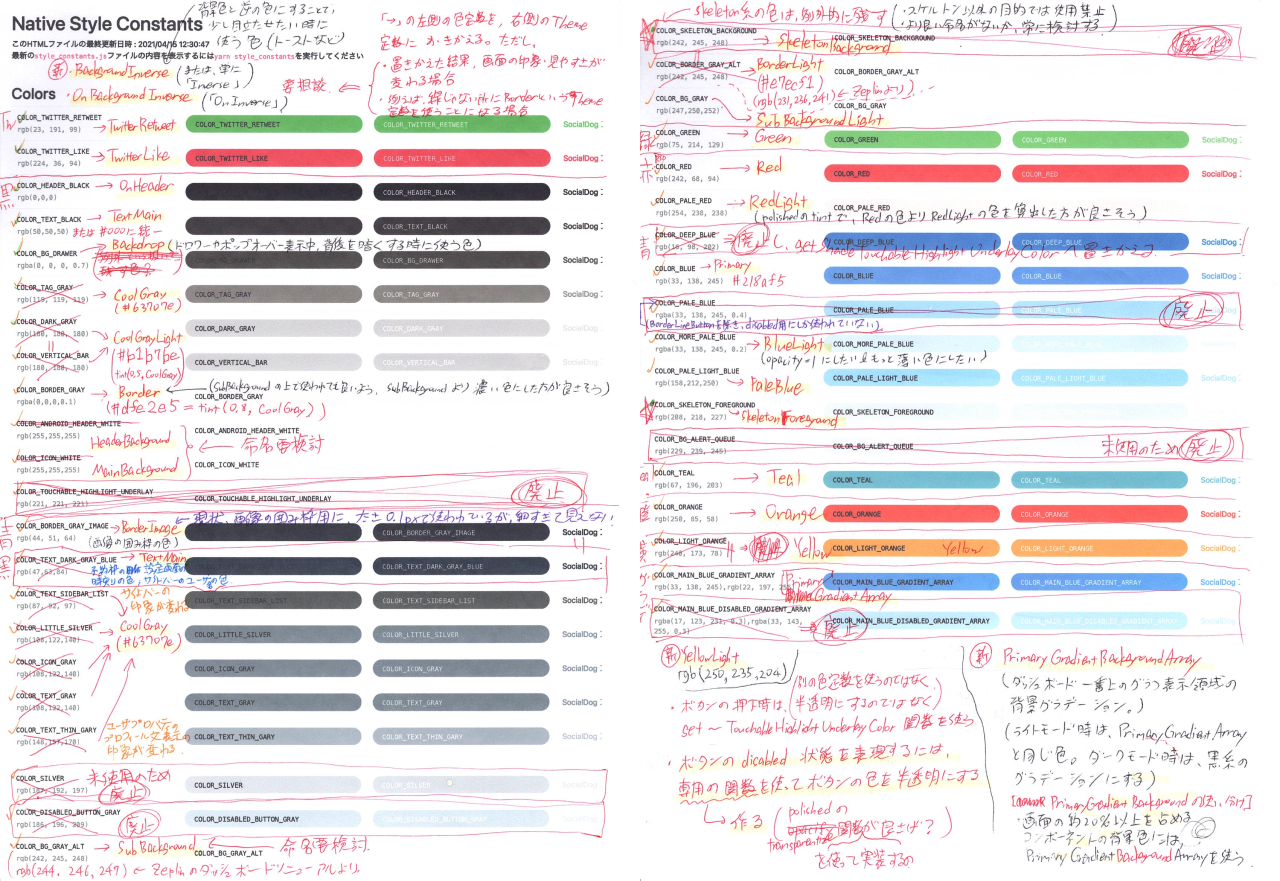 Native Style Constants
このHTMLファイルの最終更新日時 : 2021/04/15 12:30:47
最新のstyle_constants.jsファイルの内容を表示するにはyarn style_constantsを実行してください
背景色と逆の色にすることで、
少し目立たせたい時に
使う色(トーストなど)
「→」の左側の色定数を、右側のTheme
定数に おきかえる。ただし、
・置きかえた結果、画面の印象・見やすさが
変わる場合
・例えば、線じゃない所にBorderというTheme
定数を使うことになる場合
要相談。
新 ・BackgroundInverse (または、単に
「Inverse」)
・OnBackgroundInverse (「OnInverse」)
Colors
COLOR_TWITTER_RETWEET
rgb(23, 191, 99)
→ TwitterRetweet
COLOR_TWITTER_RETWEET
COLOR_TWITTER_RETWEET
SocialDog:
COLOR_TWITTER_LIKE
rgb(224, 36, 94)
→ TwitterLike
COLOR_TWITTER_LIKE
COLOR_TWITTER_LIKE
SocialDog:
黒
COLOR_HEADER_BLACK
rgb(0,0,0)
→ OnHeader
COLOR_HEADER_BLACK
SocialDog:
COLOR_TEXT_BLACK
rgb(50,50,50) または #000に統一
→ TextMain
COLOR_TEXT_BLACK
SocialDog:
COLOR_BG_DRAWER
rgba(0, 0, 0, 0.7)
→ Backdrop (ドロワーやポップオーバー表示中、背後を暗くする時に使う色)
COLOR_BG_DRAWER
COLOR_BG_DRAWER
SocialDog:
COLOR_TAG_GRAY
rgb(119, 119, 119)
→ CoolGray
(#63707e)
COLOR_TAG_GRAY
COLOR_TAG_GRAY
SocialDog:
COLOR_DARK_GRAY
rgb(180, 180, 180)
COLOR_DARK_GRAY
COLOR_DARK_GRAY
SocialDog:
→ CoolGrayLight
(#b1b7be)
tint(0.5, CoolGray)
COLOR_VERTICAL_BAR
rgb(180, 180, 180)
COLOR_VERTICAL_BAR
COLOR_VERTICAL_BAR
SocialDog:
COLOR_BORDER_GRAY
rgba(0,0,0,0.1)
→ Border ← (SubBackgroundの上で使われても良いよう、subBackgroundより濃い色にした方が良さそう)
(#dfe2e5 = tint(0.8, CoolGray))
COLOR_BORDER_GRAY
COLOR_ANDROID_HEADER_WHITE
rgb(255,255,255)
HeaderBackground
COLOR_ANDROID_HEADER_WHITE
← 命名要検討
COLOR_ICON_WHITE
rgb(255,255,255)
MainBackground
COLOR_ICON_WHITE
COLOR_TOUCHABLE_HIGHLIGHT_UNDERLAY
rgb(221, 221, 221)
COLOR_TOUCHABLE_HIGHLIGHT_UNDERLAY
廃止
青黒
COLOR_BORDER_GRAY_IMAGE
rgb(44, 51, 64)
→ BorderImage
(画像の囲み枠の色)
← 現状、画像の囲み枠用に、太さ0.1pxで使われているが、細すぎて見えない!
COLOR_BORDER_GRAY_IMAGE
SocialDog:
COLOR_TEXT_DARK_GRAY_BLUE
rgb(47,63,84)
→ TextMain
COLOR_TEXT_DARK_GRAY_BLUE
SocialDog:
COLOR_TEXT_SIDEBAR_LIST
rgb(87, 92, 97)
サイドバーの
印象が変わる
COLOR_TEXT_SIDEBAR_LIST
COLOR_TEXT_SIDEBAR_LIST
SocialDog:
COLOR_LITTLE_SILVER
rgb(108,122,140)
→ CoolGray
(#63707e)
COLOR_LITTLE_SILVER
COLOR_LITTLE_SILVER
SocialDog:
COLOR_ICON_GRAY
rgb(108,122,140)
COLOR_ICON_GRAY
COLOR_ICON_GRAY
SocialDog:
COLOR_TEXT_GRAY
rgb(108,122,140)
COLOR_TEXT_GRAY
COLOR_TEXT_GRAY
SocialDog:
COLOR_TEXT_THIN_GARY
rgb(148,157,170)
ユーザプロパティの
プロフィール文表示の
印象が変わる。
COLOR_TEXT_THIN_GARY
COLOR_TEXT_THIN_GARY
SocialDog:
COLOR_SILVER
rgb(187, 192, 197)
← 未使用のため
廃止
COLOR_SILVER
COLOR_SILVER
SocialDog:
COLOR_DISABLED_BUTTON_GRAY
rgb(186, 196, 209)
廃止
COLOR_DISABLED_BUTTON_GRAY
COLOR_DISABLED_BUTTON_GRAY
SocialDog:
COLOR_BG_GRAY_ALT
rgb(242, 245, 248)
→ SubBackground
COLOR_BG_GRAY_ALT
← 命名要検討.
(rgb(244, 246, 247) ← Zeplinのダッシュボードリニューアルより.
skeleton系の色は、例外的に残す
・スケルトン以外の目的では使用禁止
・より良い命名がないか、常に検討する
COLOR_SKELETON_BACKGROUND
rgb(242, 245, 248)
→ Skeleton
Background
COLOR_SKELETON_BACKGROUND
COLOR_BORDER_GRAY_ALT
rgb(242, 245, 248)
→ BorderLight
(#e7ec51)
(rgb(231,236,241) ← Zeplinより)
COLOR_BORDER_GRAY_ALT
COLOR_BG_GRAY
rgb(247,250,252)
SubBackgroundLight
COLOR_BG_GRAY
緑
COLOR_GREEN
rgb(75, 214, 129)
→ Green
COLOR_GREEN
COLOR_GREEN
SocialDog:
赤
COLOR_RED
rgb(242, 68, 94)
→ Red
COLOR_RED
COLOR_RED
SocialDog:
COLOR_PALE_RED
rgb(254, 238, 238)
→ RedLight
(polishedのtintで、Redの色よりRedLightの色を算出した方が良さそう)
COLOR_PALE_RED
青
COLOR_DEEP_BLUE
rgb(16, 98, 202)
→ 廃止し、getShadeTouchableHighlightUnderlayColorへ置きかえる.
COLOR_DEEP_BLUE
COLOR_DEEP_BLUE
COLOR_BLUE
rgb(33, 138, 245)
→ Primary
#218af5
COLOR_BLUE
COLOR_BLUE
SocialDog:
COLOR_PALE_BLUE
rgba(33, 138, 245, 0.4)
(BorderLineButtonを除き、disabled用にしか使われていない)
COLOR_PALE_BLUE
COLOR_PALE_BLUE
廃止
COLOR_MORE_PALE_BLUE
rgba(33, 138, 245, 0.2)
→ BlueLight
(opacity=1にしたい&もって薄い色にしたい)
COLOR_MORE_PALE_BLUE
COLOR_PALE_LIGHT_BLUE
rgb(158,212,250)
→ PaleBlue
COLOR_PALE_LIGHT_BLUE
COLOR_PALE_LIGHT_BLUE
SocialDog:
COLOR_SKELETON_FOREGROUND
rgb(208, 218, 227)
→ SkeletonForeground
COLOR_SKELETON_FOREGROUND
COLOR_BG_ALERT_QUEUE
rgb(229, 239, 245)
COLOR_BG_ALERT_QUEUE
未使用のため 廃止
COLOR_TEAL
rgb(67, 196, 203)
→ Teal
COLOR_TEAL
COLOR_TEAL
SocialDog:
COLOR_ORANGE
rgb(250, 85, 58)
→ Orange
COLOR_ORANGE
COLOR_ORANGE
SocialDog:
COLOR_LIGHT_ORANGE
rgb(248, 173, 78)
→ Yellow
COLOR_LIGHT_ORANGE
Yellow
COLOR_LIGHT_ORANGE
SocialDog:
COLOR_MAIN_BLUE_GRADIENT_ARRAY
rgb(33, 138, 245),rgb(22, 197, 
Primary
GradientArray
COLOR_MAIN_BLUE_GRADIENT_ARRAY
COLOR_MAIN_BLUE_GRADIENT_ARRAY
SocialDog:
COLOR_MAIN_BLUE_DISABLED_GRADIENT_ARRAY
rgba(17, 123, 231, 0.3),rgba(33, 143,
255, 0.3)
→ 廃止
COLOR_MAIN_BLUE_DISABLED_GRADIENT_ARRAY
COLOR_MAIN_BLUE_DISABLED_GRADIENT_ARRAY
SocialDog:
新 YellowLight
rgb(250, 235, 204)
・ボタンの押下時は、(別の色定数を使うのではなく、
半透明にするのではなく)
get～TouchableHighlightUnderlayColor 関数を使う
・ボタンの disabled 状態を表現するには、
専用の関数を使ってボタンの色を半透明にする
→ 作る (polishedの
transparentize 関数が良さげ?)
を使って実装するの
新 PrimaryGradientBackgroundArray
(ダッシュボード一番上のグラフ表示領域の
背景グラデーション。)
(ライトモード時は、PrimaryGradientArray
と同じ色。ダークモード時は、黒系の
グラデーションにする)
[PrimaryGradientBackgroundの使い分け]
・画面の約20%以上を占める
コンポーネントの背景色には、
PrimaryGradientBackgroundArrayを使う.